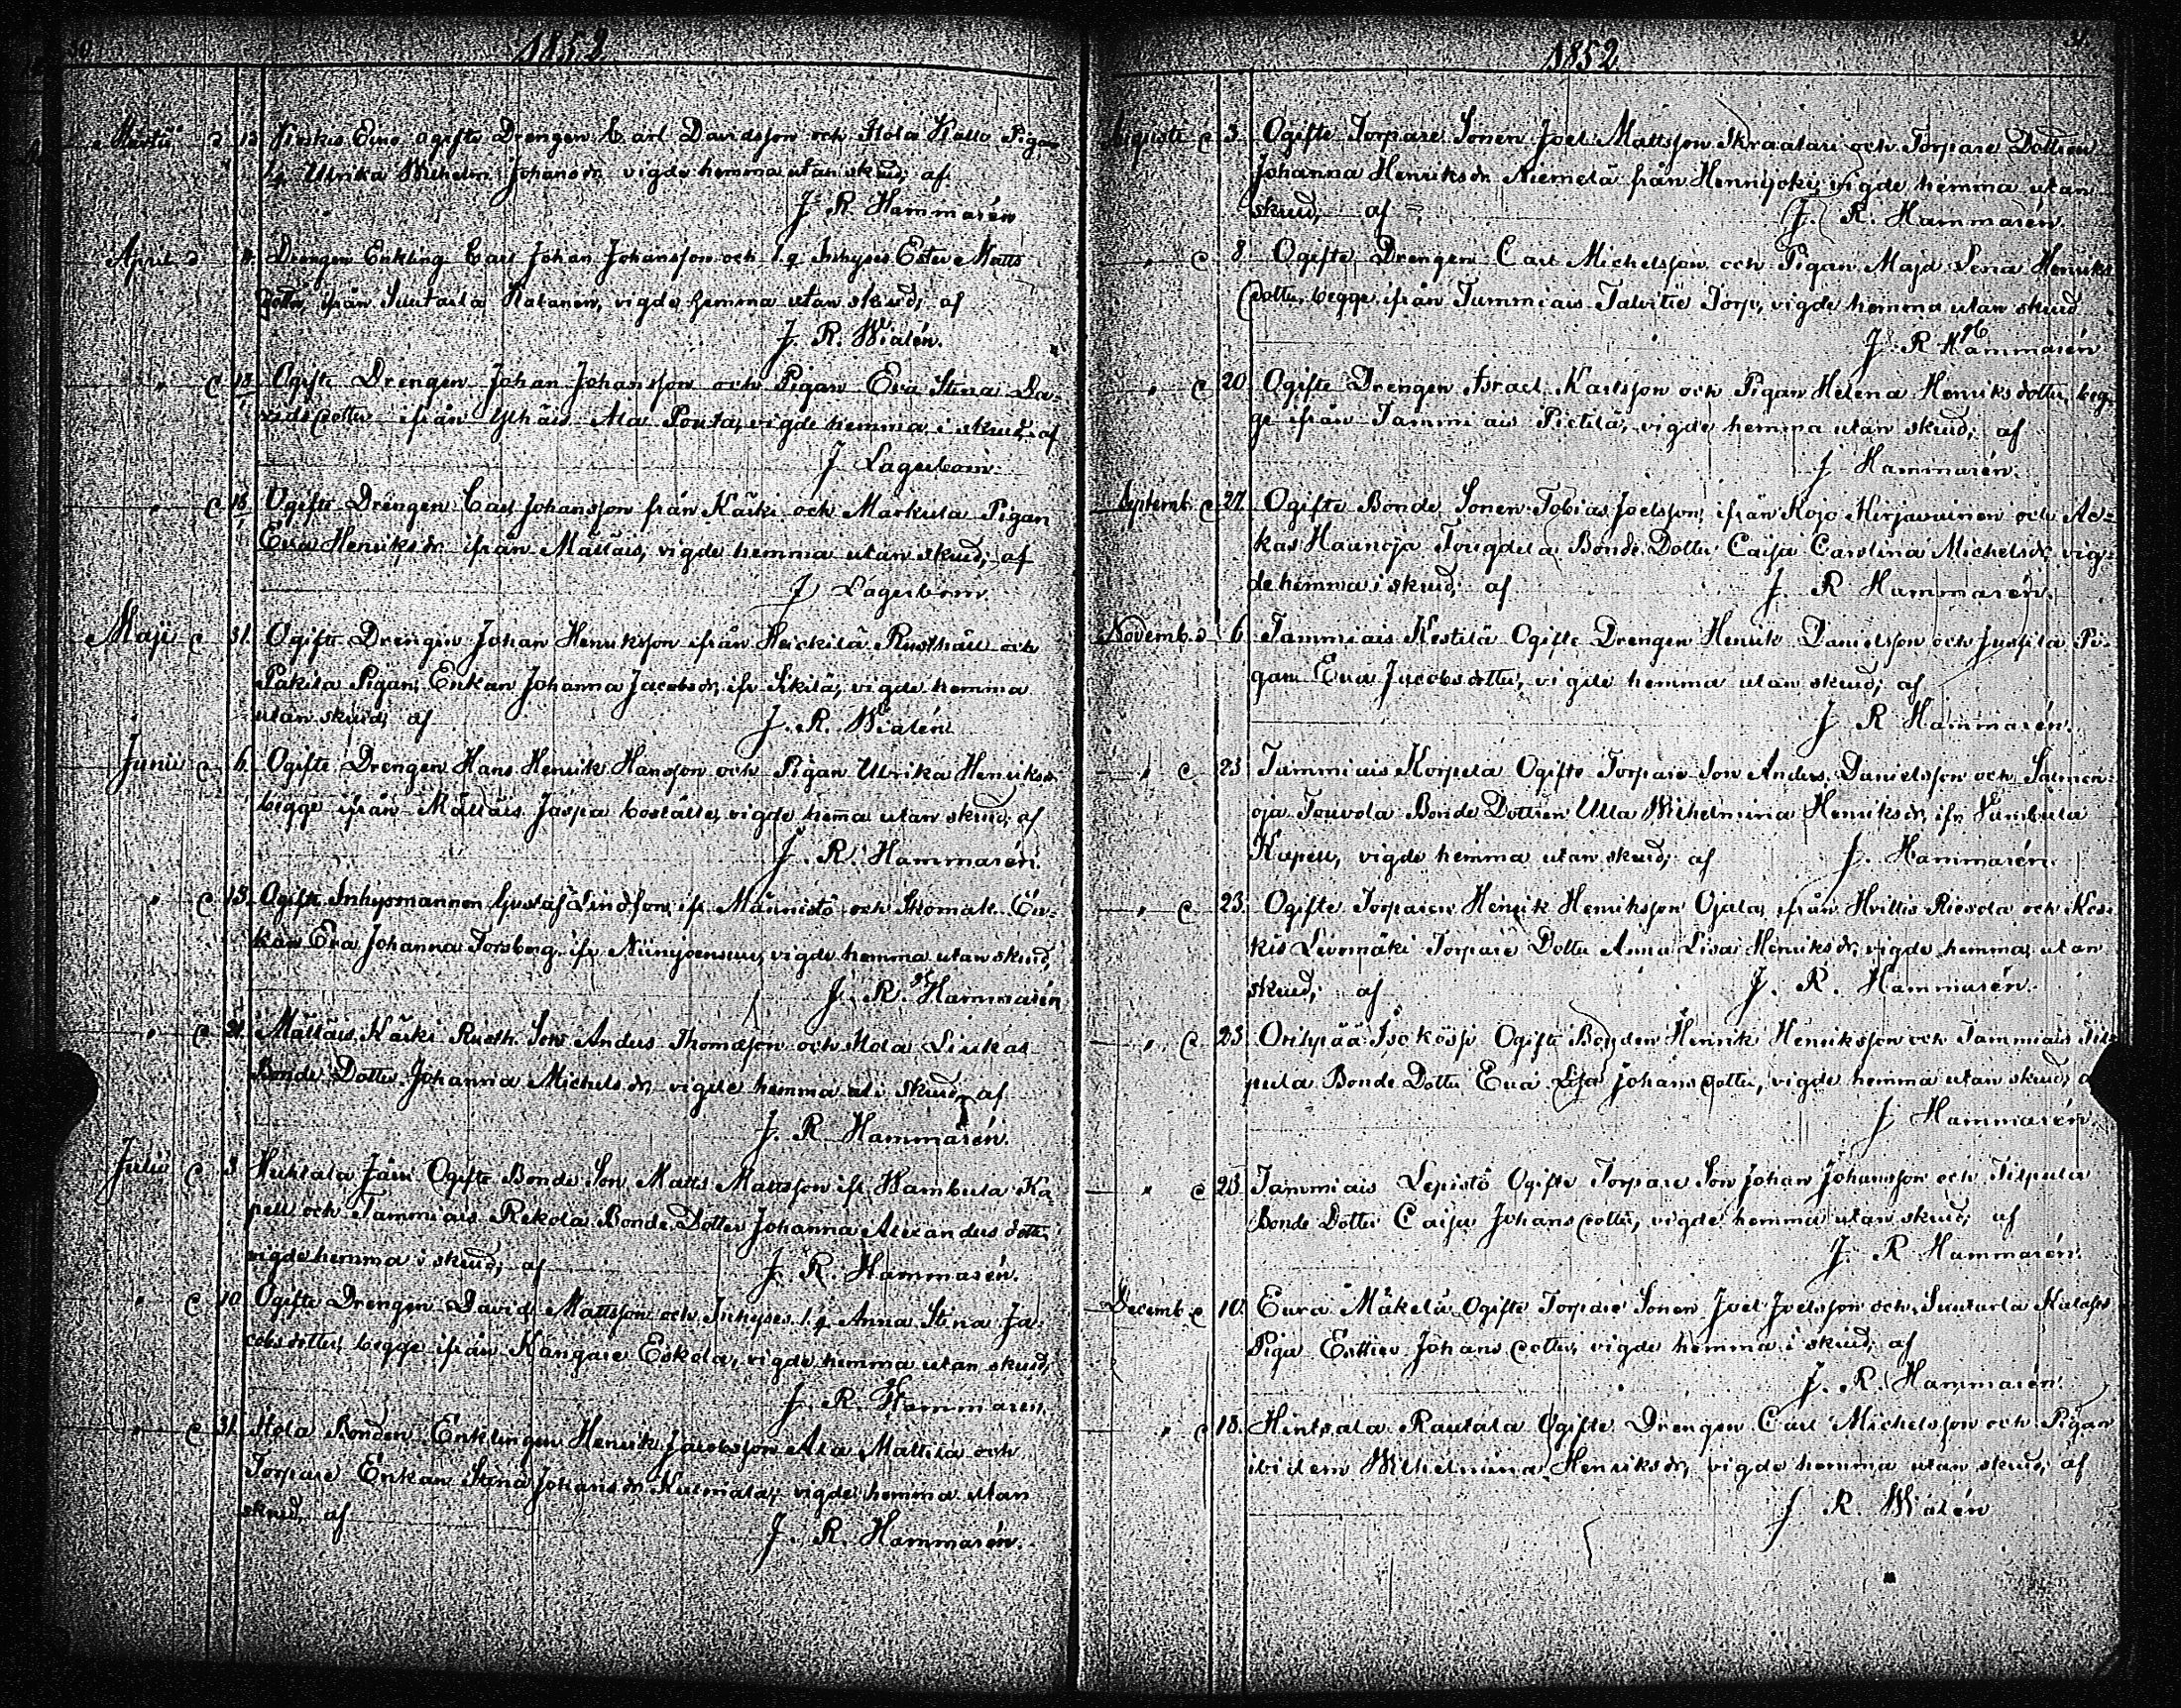 30
1852
Martii d 13 Keskis Eino ogifte Drengen Carl Davidsson och Ilola Kallo Pigan
Ulrika Wilhelm. Johansdr. vigde hemma utan skrud; af
J. R. Hammarén
April d Drengen Enkling Carl Johan Johansson och Inhyses Ester Matts
dotter, ifrån Suutarla Katanen, vigde hemma utan skrud; af
J. R. Wialén.
" d 13. Ogifte Drengen Johan Johansson och Pigan Eva Stina Da-
vidsdotter ifrån Yhäis Ala Pouta, vigde hemma i skrud; af
J Lagerbom.
" d 18. Ogifte Drengen Carl Johansson från Käiki och Markula Pigan
Eva Henriksdr. ifrån Mällais, vigde hemma utan skrud; af
J Lagerbom.
Maji d 31. Ogifte Drengen Johan Henriksson ifrån Heickilä Rusthåll och
Pakila Pigan, Enkan Johanna Jacobsdr, ifr Sikilä, vigde hemma
utan skrud; af J. R. Wialén
Junii d 6. Ogifte Drengen Hans Henrik Hansson och Pigan Ulrika Henriksdr.
begge ifrån Mällais Jaspa boställe, vigde hemma utan skrud; af
J. R. Hammarén.
" d 13. Ogifte Inhysmannen Gustaf Lindfors, ifr. Männistö och Skomak. En-
kan Eva Johanna Forsberg ifr Niinijoensuu, vigde hemma utan skrud,
J. R. Hammarén
" d 21. Mällais Käiki Rusth. Son Anders Thomasson och Ilola Liukas
Bonde Dotter Johanna Michelsdr, vigde hemma i skrud, af
J. R. Hammarén.
Julii d 3. Huhtala Jäni Ogifte Bonde Son Matts Mattsson ifr. Wambula Ka
pell och Tammiais Rekola Bonde Dotter Johanna Alexandersdotter
vigde hemma i skrud; af J. R. Hammarén.
" d 10 Ogifte Drengen David Mattsson och Inhyses Anna Stina Ja-
cobsdotter, begge ifrån Kangare Eskola, vigde hemma utan skrud;
J. R. Hammarén.
" d 31. Ilola Bonden Enklingen Henrik Jacobsson Ala Mattila och
Torpare Enkan Stina Johansdr. Kuimala, vigde hemma utan
skrud, af J. R. Hammarén.
31.
1852
Augusti d 3. Ogifte Torpare Sonen Joel Mattsson Skraatari och Torpare Dottren
Johanna Henriksdr. Niemelä från Hennijoki, vigde hemma utan
skrud; af J. R. Hammarén.
" d 8 Ogifte Drengen Carl Michelsson och Pigan Maja Lena Henriks
dotter, begge ifrån Tummiais Talvitie Torp, vigde hemma utan skrud
J. R Hammarén
" d 20 Ogifte Drengen Israel Karlsson och Pigan Helena Henriksdotter, beg-
ge ifrån Tammiais Pietilä, vigde hemma utan skrud; af
J Hammarén.
Septemb. d 27 Ogifte Bonde Sonen Tobias Joelsson, ifrån Kojo Kirjavainen och
Haunoja Bonde Dotter Caisa Carolina Michelsdr, vig-
de hemma i skrud; af J. R Hammarén.
Novemb. d 6. Tammiais Kestilä Ogifte Drengen Henrik Danielsson och Jussila Pi-
gan Eva Jacobsdotter, vigde hemma utan skrud; af
J R Hammarén.
" d 23 Tummiais Korpela Ogifte Torpare Son Anders Danielsson och Salmen-
oja Touvola Bonde Dottren Ulla Wilhelmina Henriksdr, ifr Vambula
Kapell, vigde hemma utan skrud; af J. Hammarén.
" d 23. Ogifte Torparen Henrik Henriksson Ojala, ifrån Hvittis Riesola och Kes-
kis Livomäki Torpare Dotter Anna Lisa Henriksdr, vigde hemma, utan
skrud; af J. R. Hammarén.
" d 23. Orihpää Isokössi Ogifte Bonden Henrik Henriksson och Tammiais Til-
pula Bonde Dotter Eva Lisa Johansdotter, vigde hemma utan skrud;
J Hammarén.
" d 23 Tammiais Lepistö Ogifte Torpare Son Johan Johansson och Tilpula
Bonde Dotter Caisa Johansdotter, vigde hemma utan skrud; af
J. R Hammarén.
Decemb. d 10. Eura Mäkelä Ogifte Torpare Sonen Joel Joelsson och Suutarla
Piga Esttier Johansdotter, vigde hemma i skrud; af
J. R. Hammarén.
" d 18. Hintsala Rautala Ogifte Drengen Carl Michelsson och Pigan
ibidem Wilhelmina Henriksdr, vigde hemma utan skrud; af
J R. Wialén